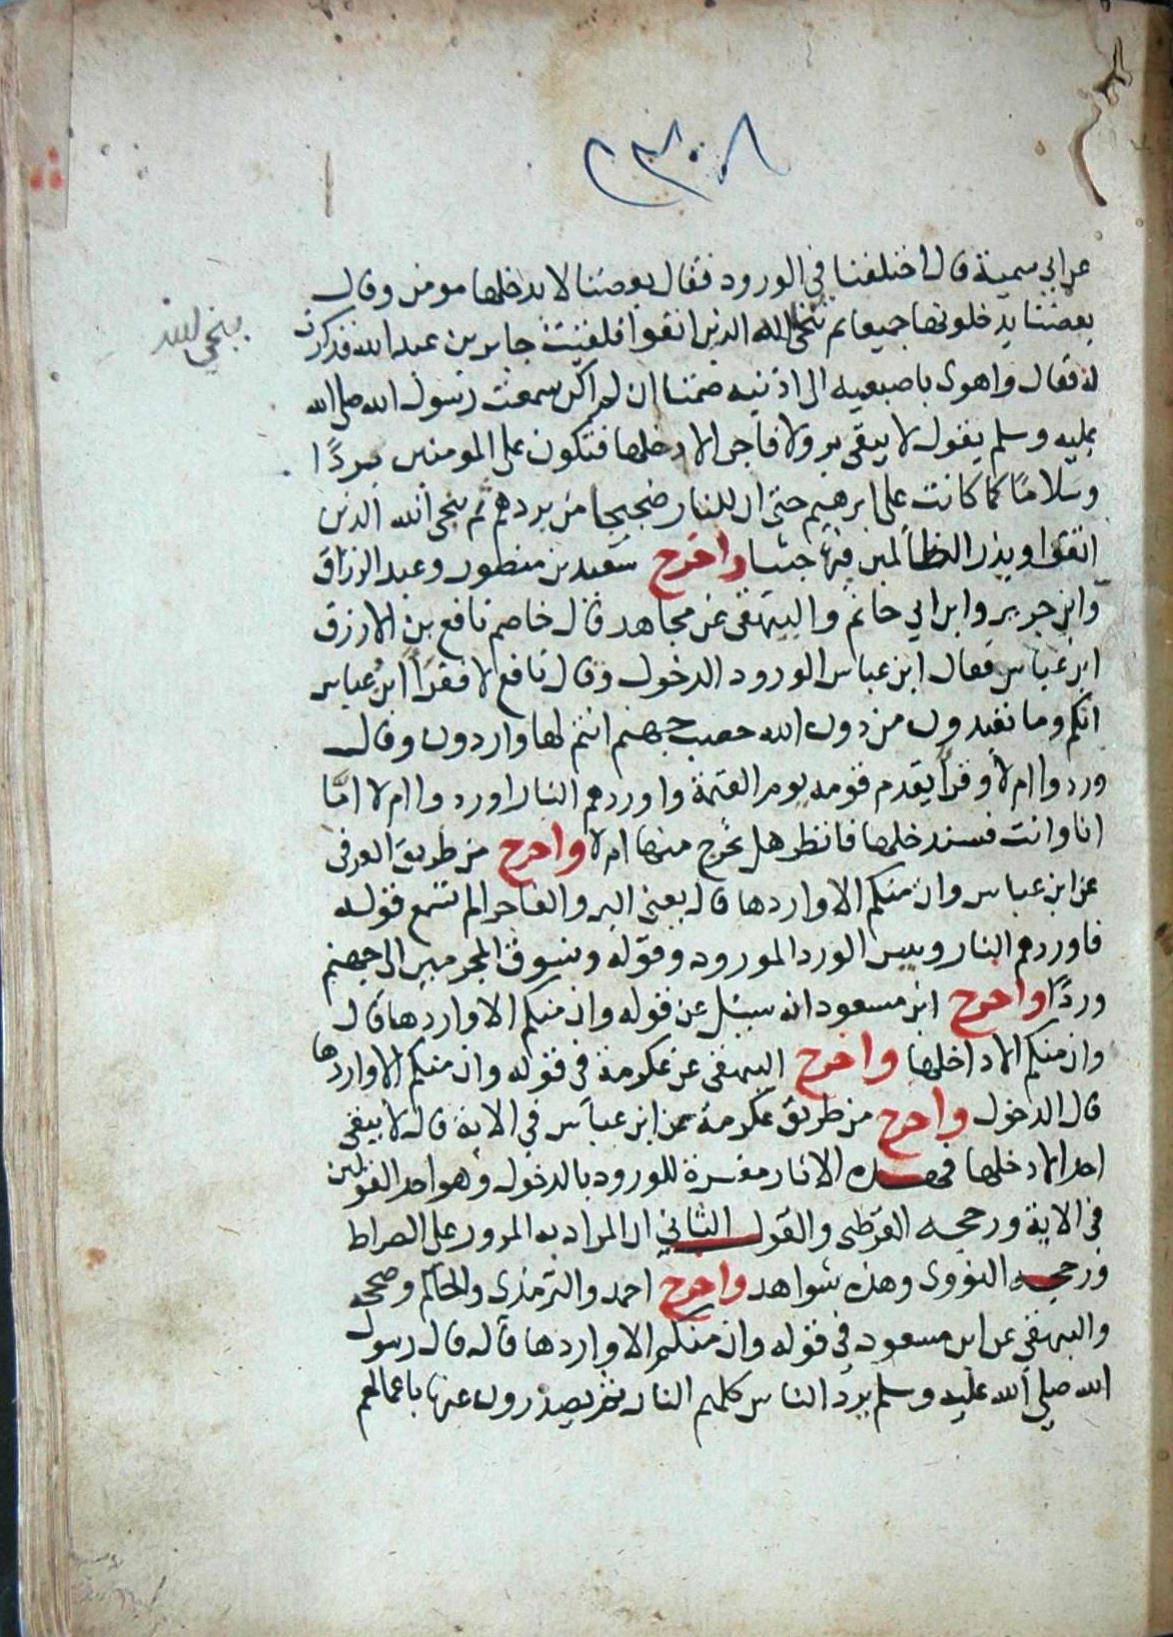 ٢٣٠٨
عن ابي سمية قال اختلفنا في الورود فقال بعضنا لا يدخلها مومن وقال
بعضنا يدخلونها جميعا ثم ننجي الله الذين اتقوا فلقيت جابر بن عبد الله فذكرت
ينجي الله
له فقال واهوى باصبعيه الى اذنيه صمتا ان لم اكن سمعت رسول الله صلى الله
عليه وسلم يقول لا يبقى بر ولا فاجر الا دخلها فتكون على المومنين بردًا
وسلامًا كما كانت على ابرهيم حتى ان للنار ضجيجا من بردهم ثم ينجي الله الذين
اتقوا ويذر الظالمين فيها جثيا واخرج سعيد بن منصور وعبد الرزاق
وابن جرير وابن ابي حاتم والبيهقى عن مجاهد قال خاصم نافع بن الازرق
ابن عباس فقال ابن عباس الورود الدخول وقال نافع لا فقرأ ابن عباس
انكم وما تعبدون من دون الله حصب جهنم انتم لها واردون وقال
وردوا ام لا وقرأ يقدم قومه يوم القيمة واوردهم النار اوردوا ام لا امّا
انا وانت فسندخلها فانظر هل نخرج منها ام لا واخرج من طريق العوفى
عن ابن عباس وان منكم الا واردها قال يعني البر والفاجر الم تسمع قوله
فاوردهم النار وبيس الورد المورود وقوله ونسوق المجرمين الى جهنم
وردًا واخرج ابن مسعود انه سئل عن قوله وان منكم الا واردها قال
وان منكم الا داخلها واخرج البيهقى عن عكرمة في قوله وان منكم الا واردها
قال الدخول واخرج من طريق عكرمة عن ابن عباس في الاية قال لا يبقى
احد الا دخلها فهذه الاثار مفسرة للورود بالدخول وهو احد القولين
في الاية ورجحه القرطبى والقول الثاني ان المراد به المرور على الصراط
ورجحه النووى وهذه شواهد واخرج احمد والترمذى والحاكم وصححه
والبيهقى عن ابن مسعود في قوله وان منكم الا واردها قال قال رسول
الله صلى الله عليه وسلم يرد الناس كلهم النار ثم يصدرون عنها باعمالهم